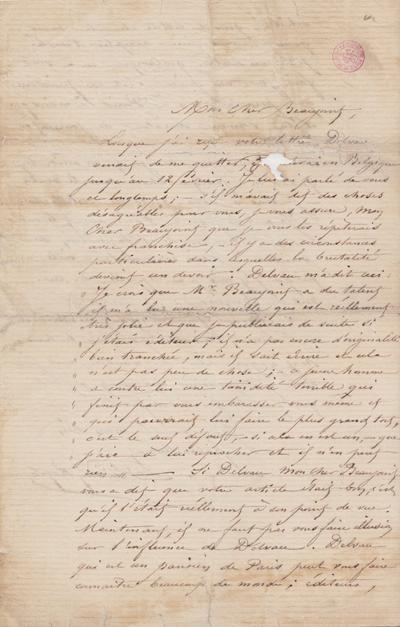 Mon Cher Beaujoint,
Lorsque j'ai reçu votre lettre Delvau
venait de me quitter, en Belgique
jusqu'au 12 février. Je lui ai parlé de vous
et longtemps; - s'il m'avait dit des choses
désagréables pour vous, je vous assure, Mon
Cher Beaujoint que je vous les répéterais
avec franchise, - il y a des circonstances
particulières dans lesquelles la brutalité
devient un devoir: Delvau m'a dit ceci:
"Je crois que Mr. Beaujoint a du talent
il m'a lu une nouvelle qui est réellement
très jolie et que je publierais de suite si
j'étais éditeur; il n'a pas encore d'originalité
bien tranchée, mais il sait écrire et cela
" n'est pas peu de chose; - ce jeune homme
" a contre lui une timidité terrible qui
" finit par vous embarrasser vous même et
" qui pourrait lui faire le plus grand tort,
" c'est le seul défaut, - si cela en est un, - que
" j'aie à lui reprocher et il n'en peut
" rien " — Si Delvau mon cher Beaujoint
vous a dit que votre article était bon, c'est
qu'il l'était réellement à son point de vue.
Maintenant, il ne faut pas vous faire illusion
sur l'influence de Delvau. Delvau
qui est un parisien de Paris peut vous faire
connaître beaucoup de monde; éditeurs,